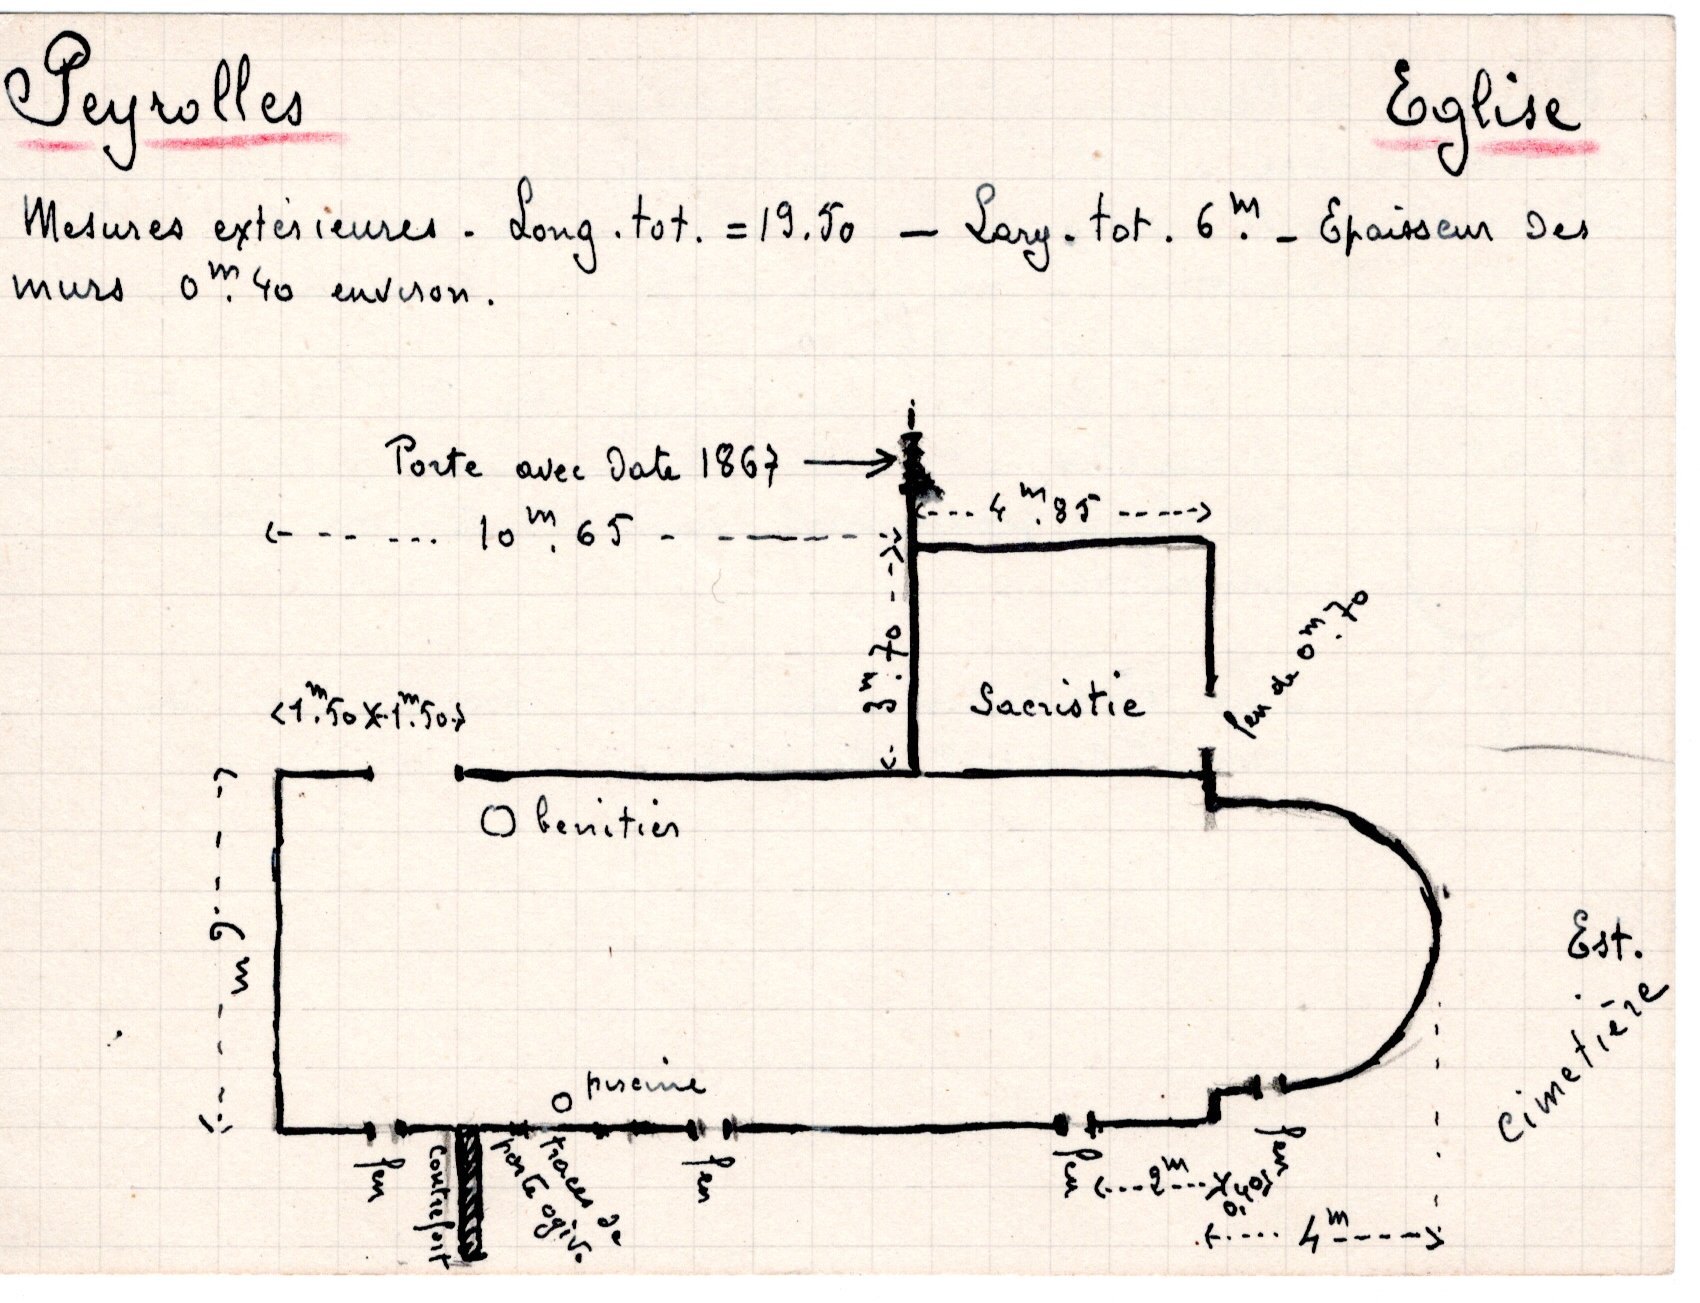 Peyrolles
Eglise
Mesures extérieures - Long. tot. = 19.50 — Larg. tot. 6m. - Epaisseur des
murs 0m.40 environ.
Porte avec date 1867
4m.85
10m.65
3m.70
fen de 0m.70
1m.50 x 1m.50
Sacristie
O benitier
6m
Est.
cimetière
O piscine
fen
contrefort
traces de
porte ogiv.
fen
fen
2m
0,40
fen
4m